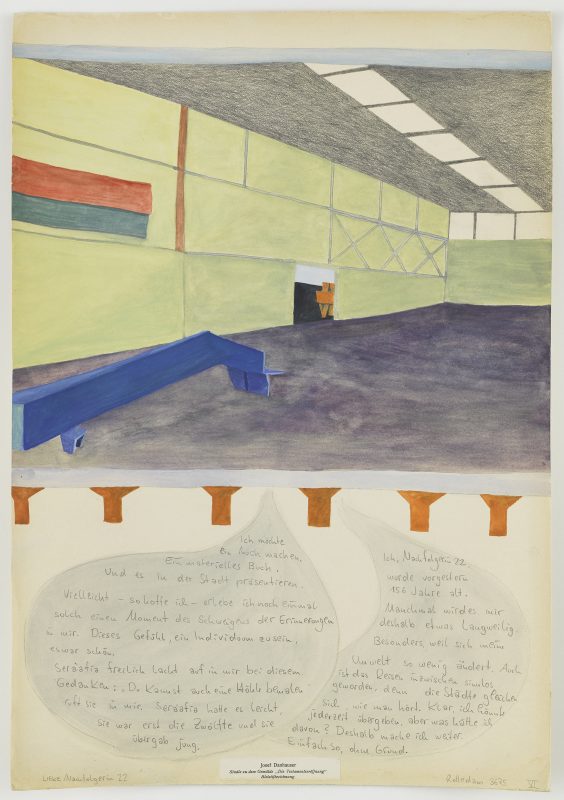 Ich möchte
ein Buch machen.
Ein materielles Buch.
Und es in der Stadt präsentieren.
Vielleicht – so hoffe ich – erlebe ich noch einmal
solch einen Moment des Schweigens der Erinnerungen
in mir. Dieses Gefühl, ein Individuum zu sein,
es war schön.
Seraafia freilich lacht auf in mir bei diesem
Gedanken: „Du kannst auch eine Höhle bemalen"
ruft sie in mir. Seraafia hatte es leicht,
sie war erst die Zwölfte und sie
übergab jung.
Ich, Nachfolgerin 22
wurde vorgestern
156 Jahre alt.
Manchmal wird es mir
deshalb etwas langweilig.
Besonders, weil sich meine
Umwelt so wenig ändert. Auch
ist das Reisen inzwischen sinnlos
geworden, denn die Städte gleichen
sich, wie man hört. Klar, ich könnte
jederzeit übergeben, aber was hätte ich
davon? Deshalb mache ich weiter.
Einfach so, ohne Grund.
Josef Danhauser
Studie zu dem Gemälde „Die Testamentseröffnung"
Bleistiftzeichnung
Nachfolgerin 22
Rotterdam 3675 VI